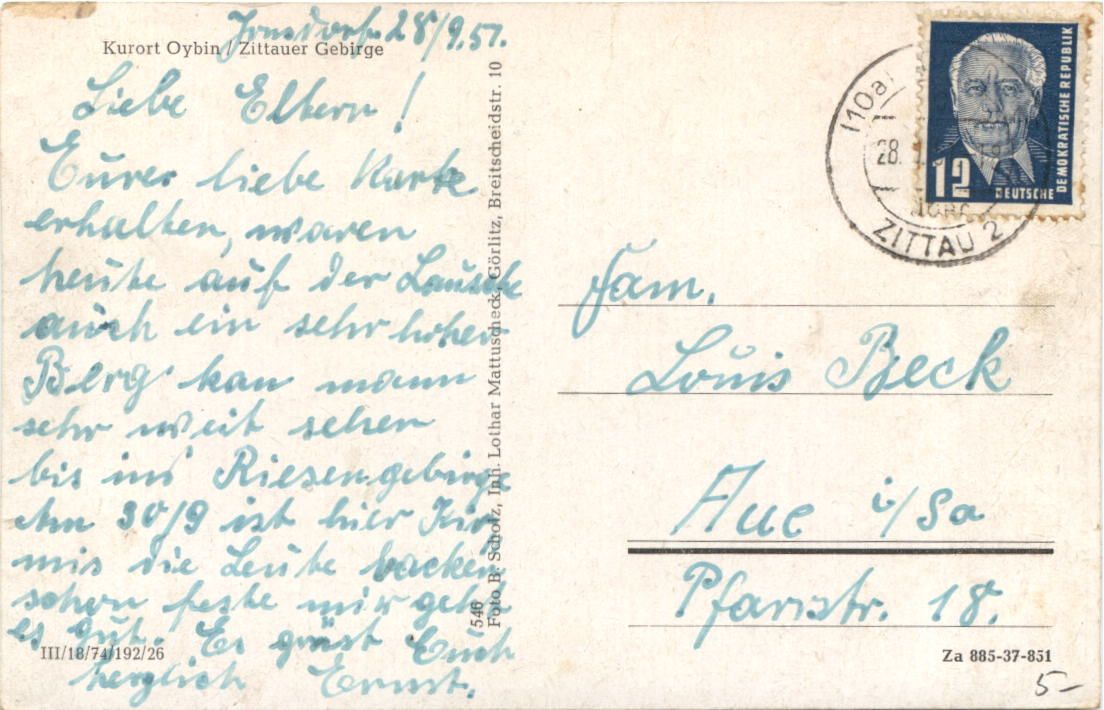 Jonsdorf. 28/9.51.
Kurort Oybin / Zittauer Gebirge
Liebe Eltern!
Eurer liebe Karte
erhalten, waren
heute auf der Lausche
auch ein sehr hoher
Berg kan mann
sehr weit sehen
bis ins Riesengebirge
Am 30/9 ist hier Kir
mis die Leute backen
schon feste mir geht
es gut. Es grüst Euch
herzlich Ernst.
III/18/74/192/26
546
Foto B. Scholz, Inh. Lothar Mattuscheck, Görlitz, Breitscheidstr. 10
(10a)
28.
ZITTAU 2
12
DEUTSCHE
DEMOKRATISCHE REPUBLIK
Fam.
Louis Beck
Aue i/Sa
Pfarrstr. 18.
Za 885-37-851
5-